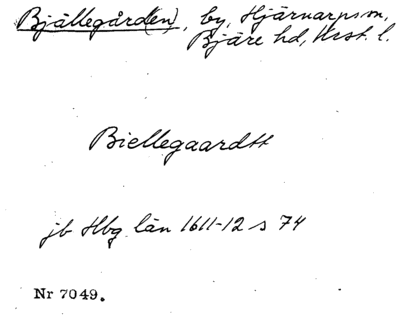 Bjällegård(en), by, Hjärnarps sn,
Bjäre hd, Krist. l.
Biellegaardtt
jb Hbg län 1611-12 s 74
Nr 7049.